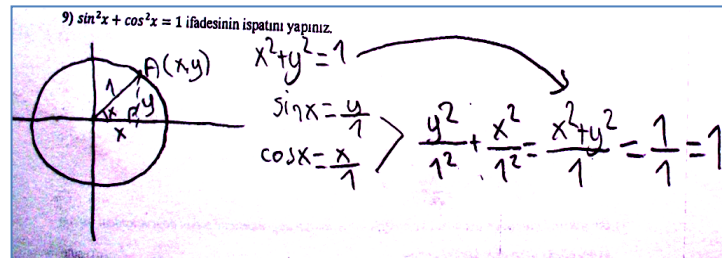 9) sin²x + cos²x = 1 ifadesinin ispatını yapınız.
A(x,y)
1
y
x
x
x²+y²=1
sinx=y/1
cosx=x/1
y²/1² + x²/1² = x²+y²/1 = 1/1 = 1